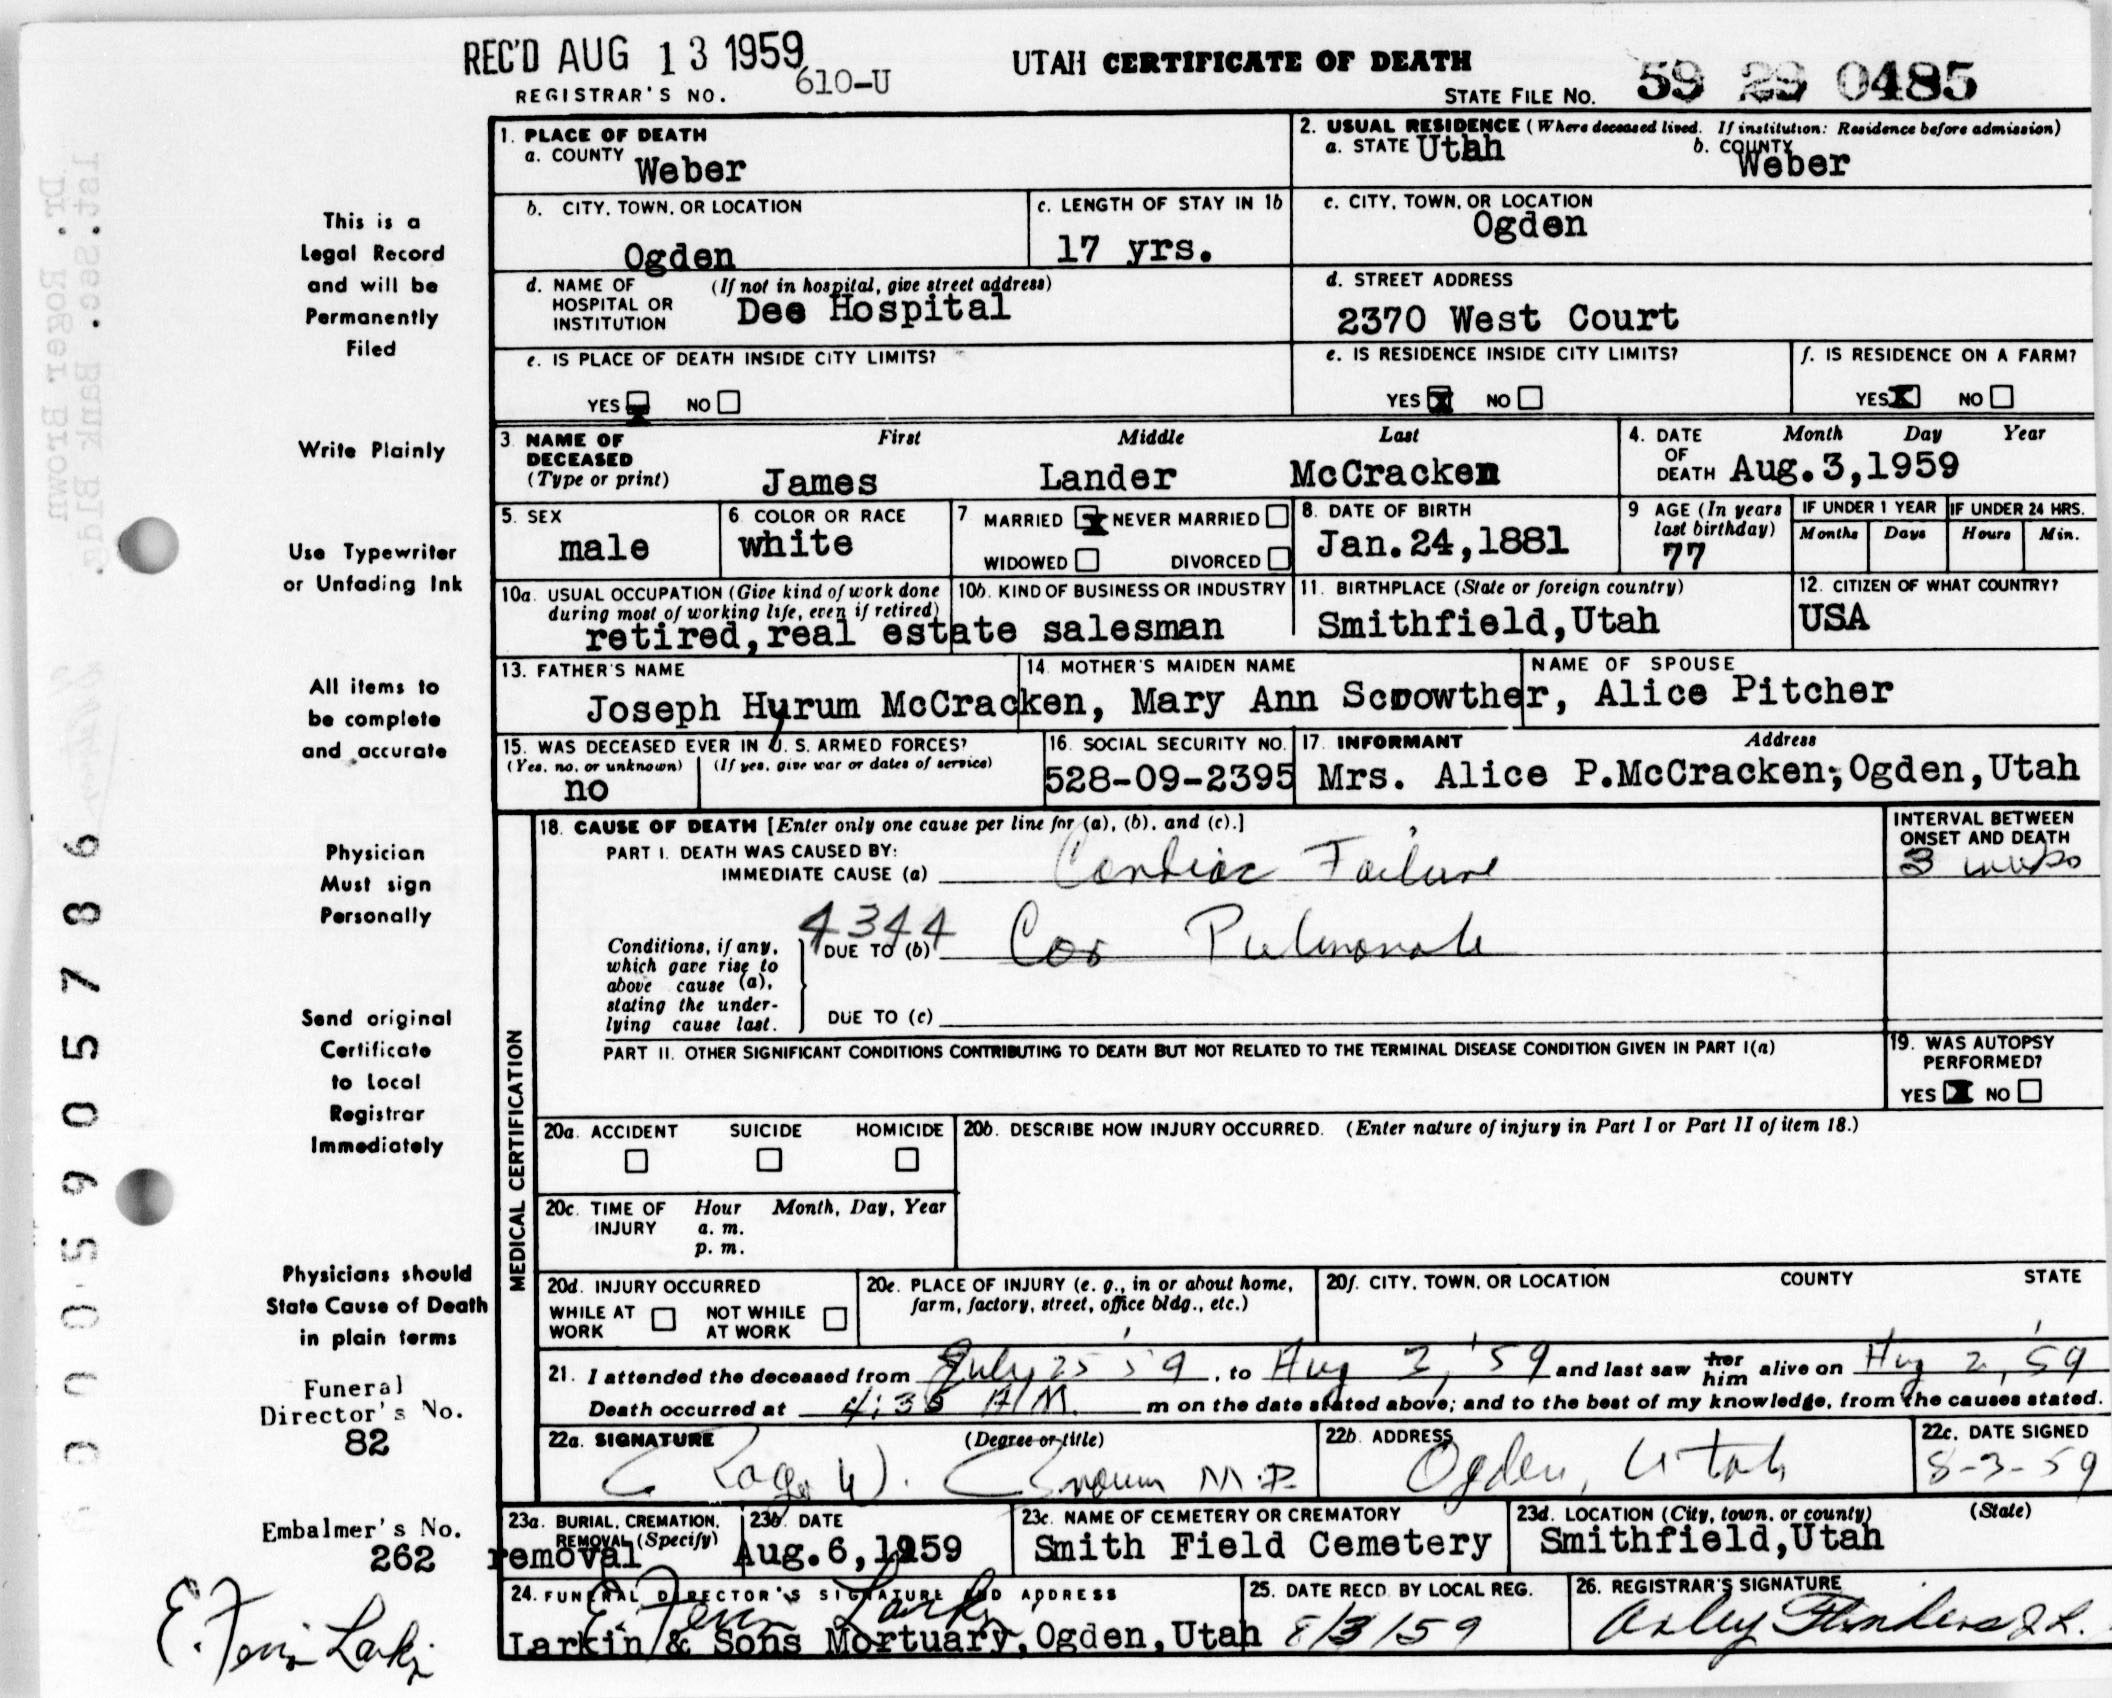 REC'D AUG 13 1959
610-U
REGISTRAR'S NO.
UTAH CERTIFICATE OF DEATH
STATE FILE NO. 59 29 0485
1. PLACE OF DEATH
a. COUNTY Weber
2. USUAL RESIDENCE (Where deceased lived. If institution: Residence before admission)
a. STATE Utah b. COUNTY Weber
b. CITY, TOWN, OR LOCATION Ogden
c. LENGTH OF STAY IN 1b 17 yrs.
c. CITY, TOWN, OR LOCATION Ogden
d. NAME OF HOSPITAL OR INSTITUTION (If not in hospital, give street address) Dee Hospital
d. STREET ADDRESS 2370 West Court
e. IS PLACE OF DEATH INSIDE CITY LIMITS? YES NO
e. IS RESIDENCE INSIDE CITY LIMITS? YES X NO
f. IS RESIDENCE ON A FARM? YES X NO
3. NAME OF DECEASED (Type or print)
First Middle Last
James Lander McCracken
4. DATE OF DEATH Month Day Year Aug.3,1959
5. SEX male
6. COLOR OR RACE white
7 MARRIED X NEVER MARRIED
WIDOWED DIVORCED
8. DATE OF BIRTH Jan.24,1881
9 AGE (In years last birthday) 77
IF UNDER 1 YEAR Months Days
IF UNDER 24 HRS. Hours Min.
10a. USUAL OCCUPATION (Give kind of work done during most of working life, even if retired)
10b. KIND OF BUSINESS OR INDUSTRY
retired,real estate salesman
11. BIRTHPLACE (State or foreign country) Smithfield,Utah
12. CITIZEN OF WHAT COUNTRY? USA
13. FATHER'S NAME 14. MOTHER'S MAIDEN NAME NAME OF SPOUSE
Joseph Hyrum McCracken, Mary Ann Scrowther, Alice Pitcher
15. WAS DECEASED EVER IN U. S. ARMED FORCES?
(Yes, no, or unknown) (If yes, give war or dates of service)
no
16. SOCIAL SECURITY NO. 528-09-2395
17. INFORMANT Address
Mrs. Alice P.McCracken;Ogden,Utah
18. CAUSE OF DEATH [Enter only one cause per line for (a), (b), and (c).]
INTERVAL BETWEEN ONSET AND DEATH
PART I. DEATH WAS CAUSED BY:
IMMEDIATE CAUSE (a) Cardiac Failure 3 weeks
4344
Conditions, if any, which gave rise to above cause (a), stating the underlying cause last.
DUE TO (b) Cor Pulmonale
DUE TO (c)
PART II. OTHER SIGNIFICANT CONDITIONS CONTRIBUTING TO DEATH BUT NOT RELATED TO THE TERMINAL DISEASE CONDITION GIVEN IN PART I(a)
19. WAS AUTOPSY PERFORMED?
YES X NO
MEDICAL CERTIFICATION
20a. ACCIDENT SUICIDE HOMICIDE
20b. DESCRIBE HOW INJURY OCCURRED. (Enter nature of injury in Part I or Part II of item 18.)
20c. TIME OF INJURY Hour Month, Day, Year
a. m.
p. m.
20d. INJURY OCCURRED
WHILE AT WORK NOT WHILE AT WORK
20e. PLACE OF INJURY (e. g., in or about home, farm, factory, street, office bldg., etc.)
20f. CITY, TOWN, OR LOCATION COUNTY STATE
21. I attended the deceased from July 25 '59, to Aug 3, '59 and last saw her him alive on Aug 2, '59
Death occurred at 4:35 AM m on the date stated above; and to the best of my knowledge, from the causes stated.
22a. SIGNATURE (Degree or title) Roger W. Brown M.D.
22b. ADDRESS Ogden, Utah
22c. DATE SIGNED 8-3-59
23a. BURIAL, CREMATION, REMOVAL (Specify) removal
23b. DATE Aug.6,1959
23c. NAME OF CEMETERY OR CREMATORY Smith Field Cemetery
23d. LOCATION (City, town, or county) (State) Smithfield,Utah
24. FUNERAL DIRECTOR'S SIGNATURE AND ADDRESS
Larkin & Sons Mortuary,Ogden,Utah
25. DATE RECD. BY LOCAL REG. 8/3/59
26. REGISTRAR'S SIGNATURE
This is a
Legal Record
and will be
Permanently
Filed
Write Plainly
Use Typewriter
or Unfading Ink
All items to
be complete
and accurate
Physician
Must sign
Personally
Send original
Certificate
to Local
Registrar
Immediately
Physicians should
State Cause of Death
in plain terms
Funeral
Director's No.
82
Embalmer's No.
262
1st.Sec. Bank Bldg.
Dr. Roger Brown